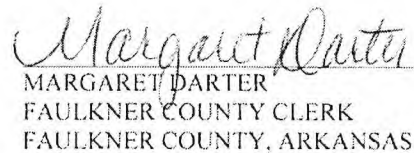 Margaret Darter
MARGARET DARTER
FAULKNER COUNTY CLERK
FAULKNER COUNTY, ARKANSAS